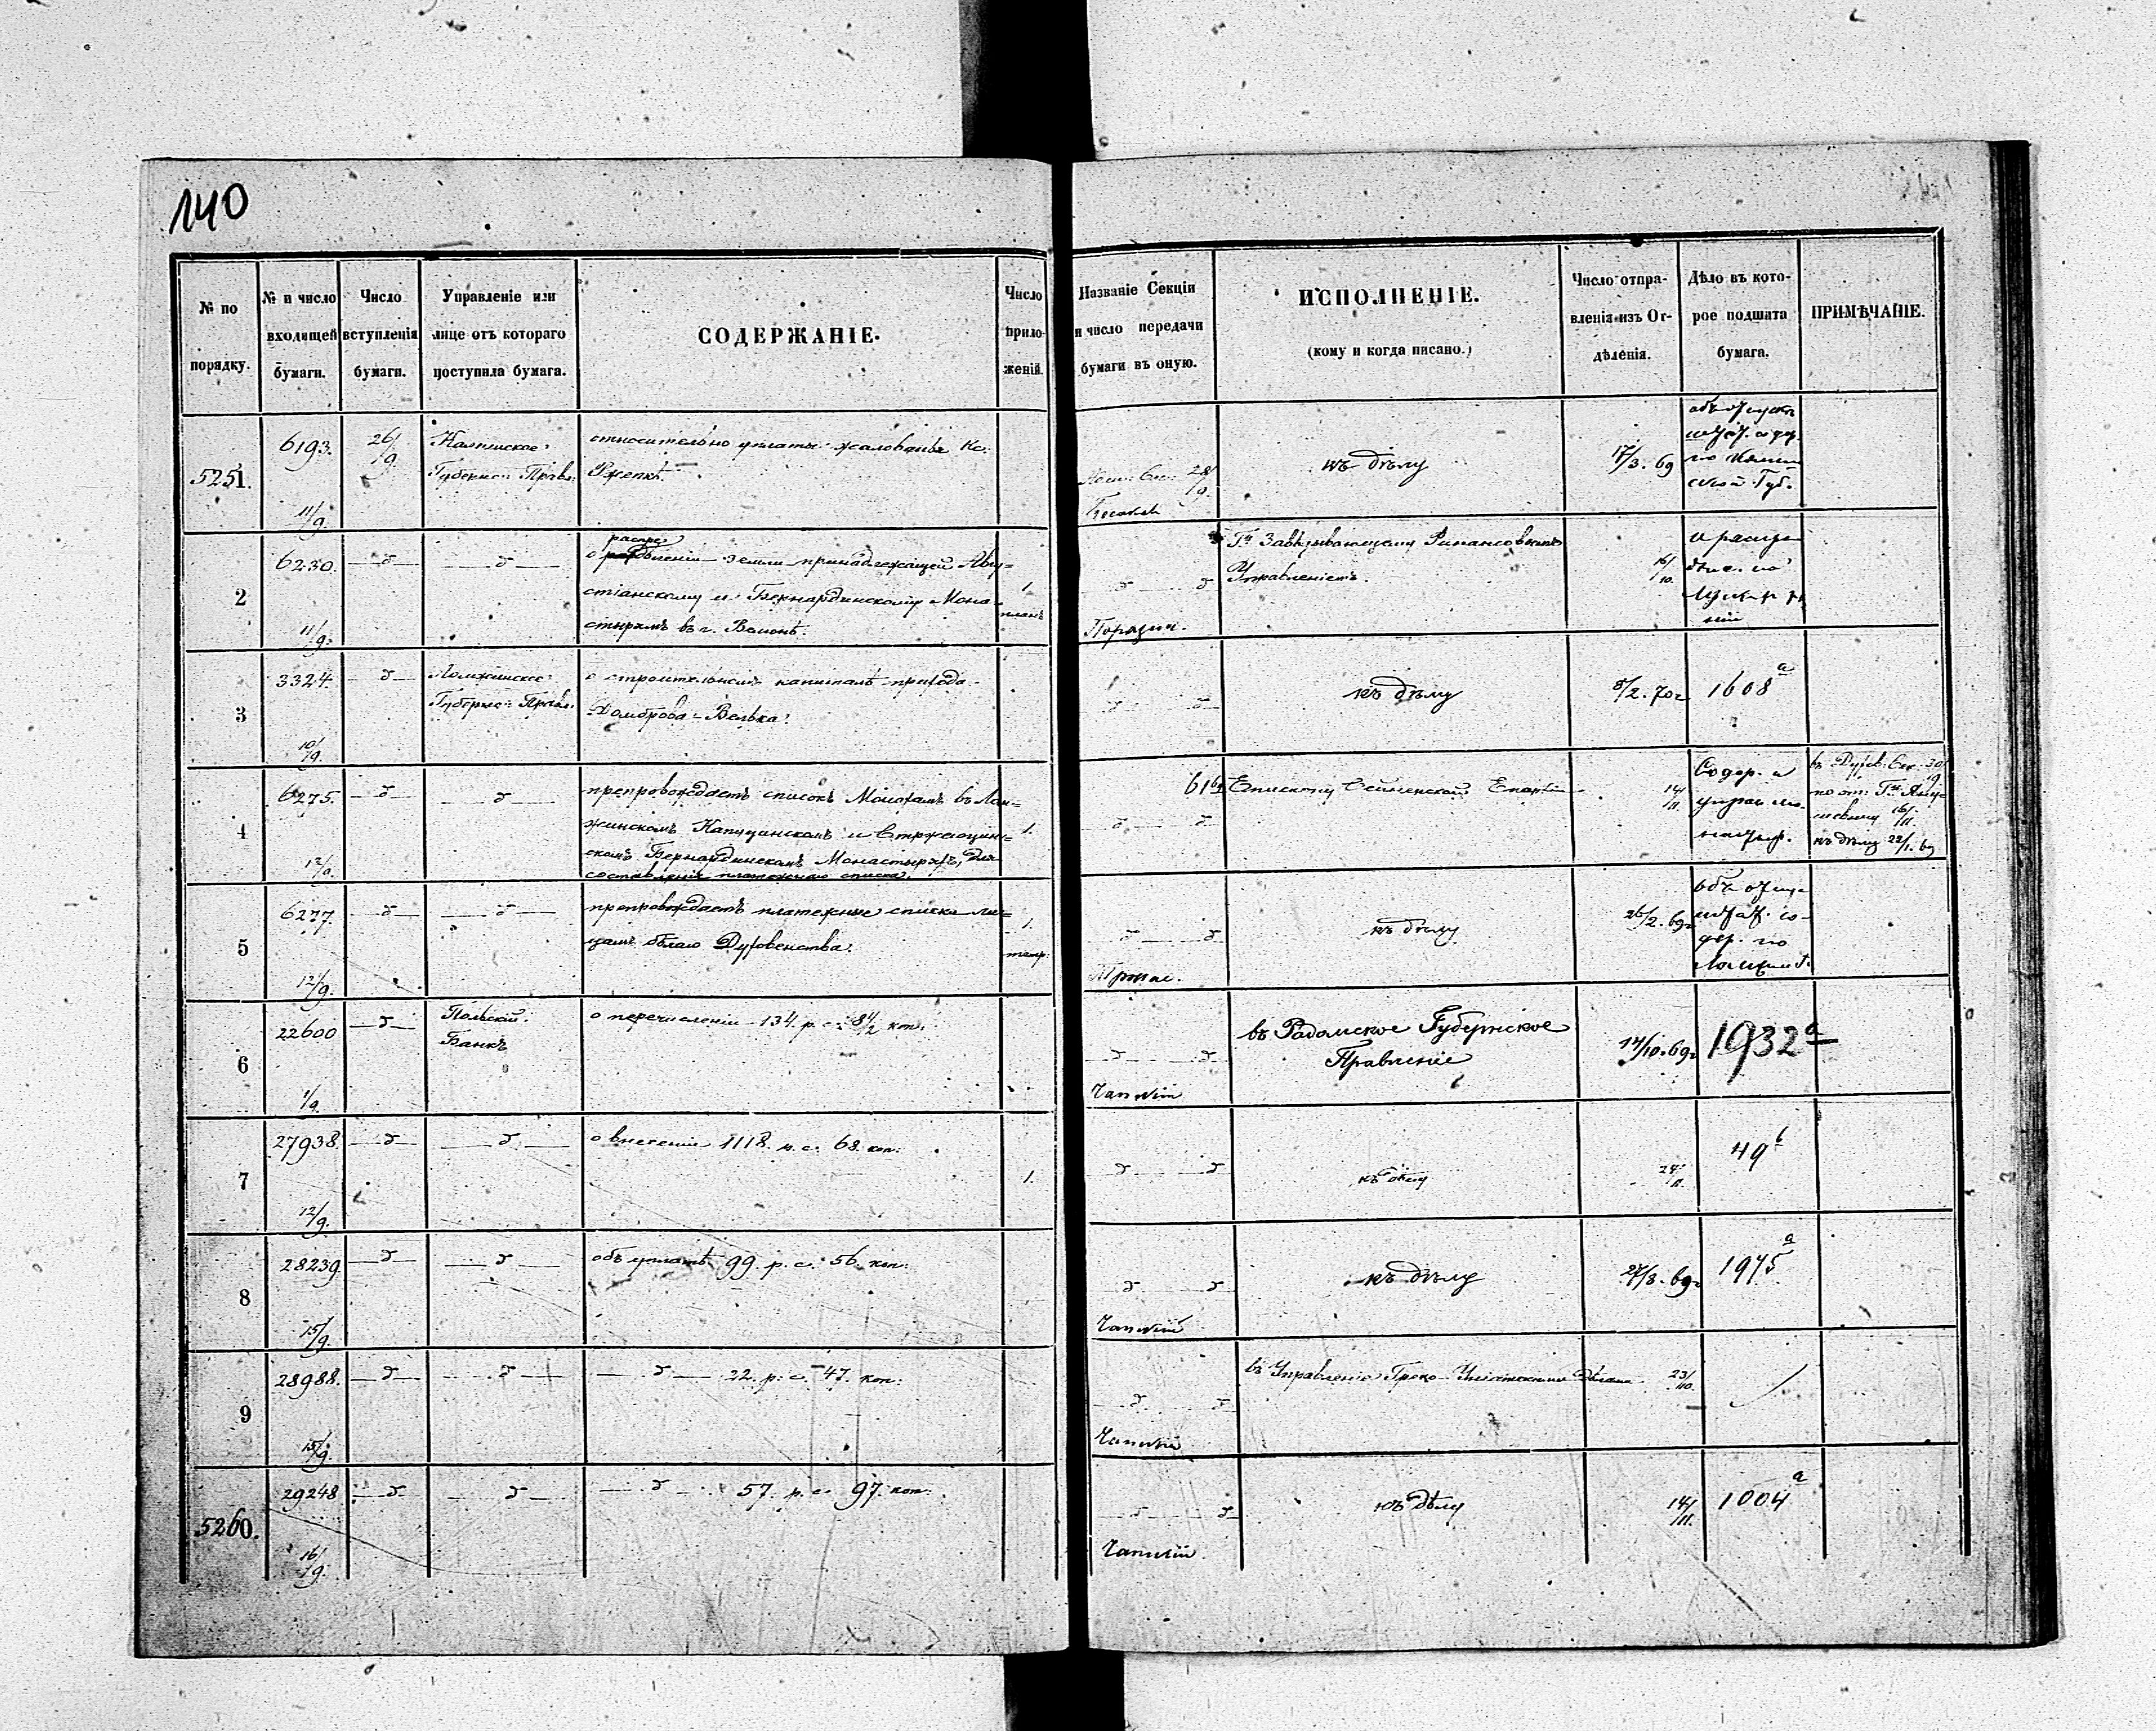 140
№ по порядку.
№ и число входящей бумаги.
Число вступленія бумаги.
Управленіе или лице отъ котораго поступила бумага.
СОДЕРЖАНІЕ.
Число приложеній.
Названіе Секціи и число передачи бумаги въ оную.
ИСПОЛНЕНІЕ.
(кому и когда писано.)
Число отправленія изъ Отдѣленія.
Дѣло въ которое подшита бумага.
ПРИМѢЧАНІЕ.
5251.
6193.
11/9.
26/9.
Губернс: Правл:
относительно уплаты жалованья Кс:
28/9.
къ дѣлу
17/3. 69
2
6230.
11/9.
— д —
— д —
распре
о дѣленіи земли принадлежащей Авгу=
стіанскому и Бернардинскому Мона=
стырямъ въ г.
1.
планъ
д д
Гну Завѣдывающему Финансовымъ
Управленіемъ.
16/10.
3
3324.
10/9.
— д —
Ломжинское
Губернс: Правл:
о строительномъ капиталѣ прихода
Домброва-Велька.
д д
къ дѣлу
8/2. 70г
1608 а
4
6275.
12/9.
— д —
— д —
препровождаетъ списокъ Монахамъ въ Лом=
жинскомъ Капуцинскомъ и
скомъ Бернардинскомъ Монастыряхъ, для
составленія платежнаго списка.
1.
д д
Епископу Сейненской Епархіи
14/11.
къ дѣлу 22/1. 69
5
6277.
12/9.
— д —
— д —
препровождаетъ платежные списки ли=
цамъ бѣлаго Духовенства.
1.
д д
къ дѣлу
26/2. 69г
6
22600
1/9.
— д —
Польскій
Банкъ
о перечисленіи 134. р. с. 84½ коп:
д д
въ Радомское Губернское
Правленіе
14/10. 69г
1932 а
7
27938.
12/9.
— д —
— д —
о внесеніи 1118. р. с. 68. коп:
1.
д д
къ дѣлу
24/11.
49 b
8
28239
15/9.
— д —
— д —
объ уплатѣ 99. р. с. 56. коп:
д д
къ дѣлу
27/3. 69г
1975 а
9
28988.
15/9.
— д —
— д —
— д — 22. р. с. 47. коп:
д д
въ Управленіе Греко-Уніатскими дѣлами
23/10.
5260.
29248
16/9.
— д —
— д —
— д — 57. р. с. 97. коп:
д д
къ дѣлу
14/11.
1004 а